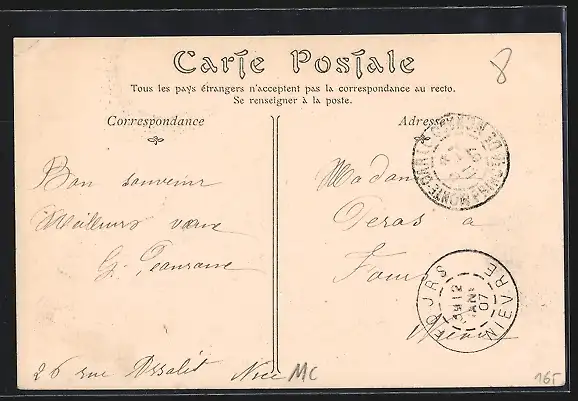 Carte Postale
Tous les pays étrangers n'acceptent pas la correspondance au recto.
Se renseigner à la poste.
Correspondance
Adresse
8
Bon souvenir
Meilleurs vœux
G.
26 rue Assalit Nice MC
Madame
Peras à
Fours
Nièvre
FOURS
12
JANV
07
NIEVRE
MONTE-CARLO
165